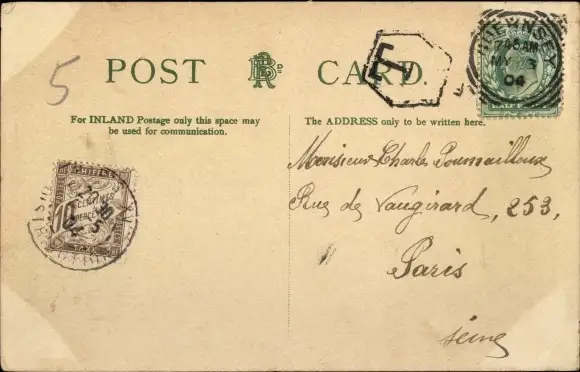 5
POST CARD.
T
GUERNSEY
7 45 AM
MY 23
04
HALF PENNY
For INLAND Postage only this space may
be used for communication.
The ADDRESS only to be written here.
Monsieur Charles
Rue de Vaugirard, 253,
Paris
Seine
CHIFFRE
10
CENTIMES
A PERCEVOIR
TAXE